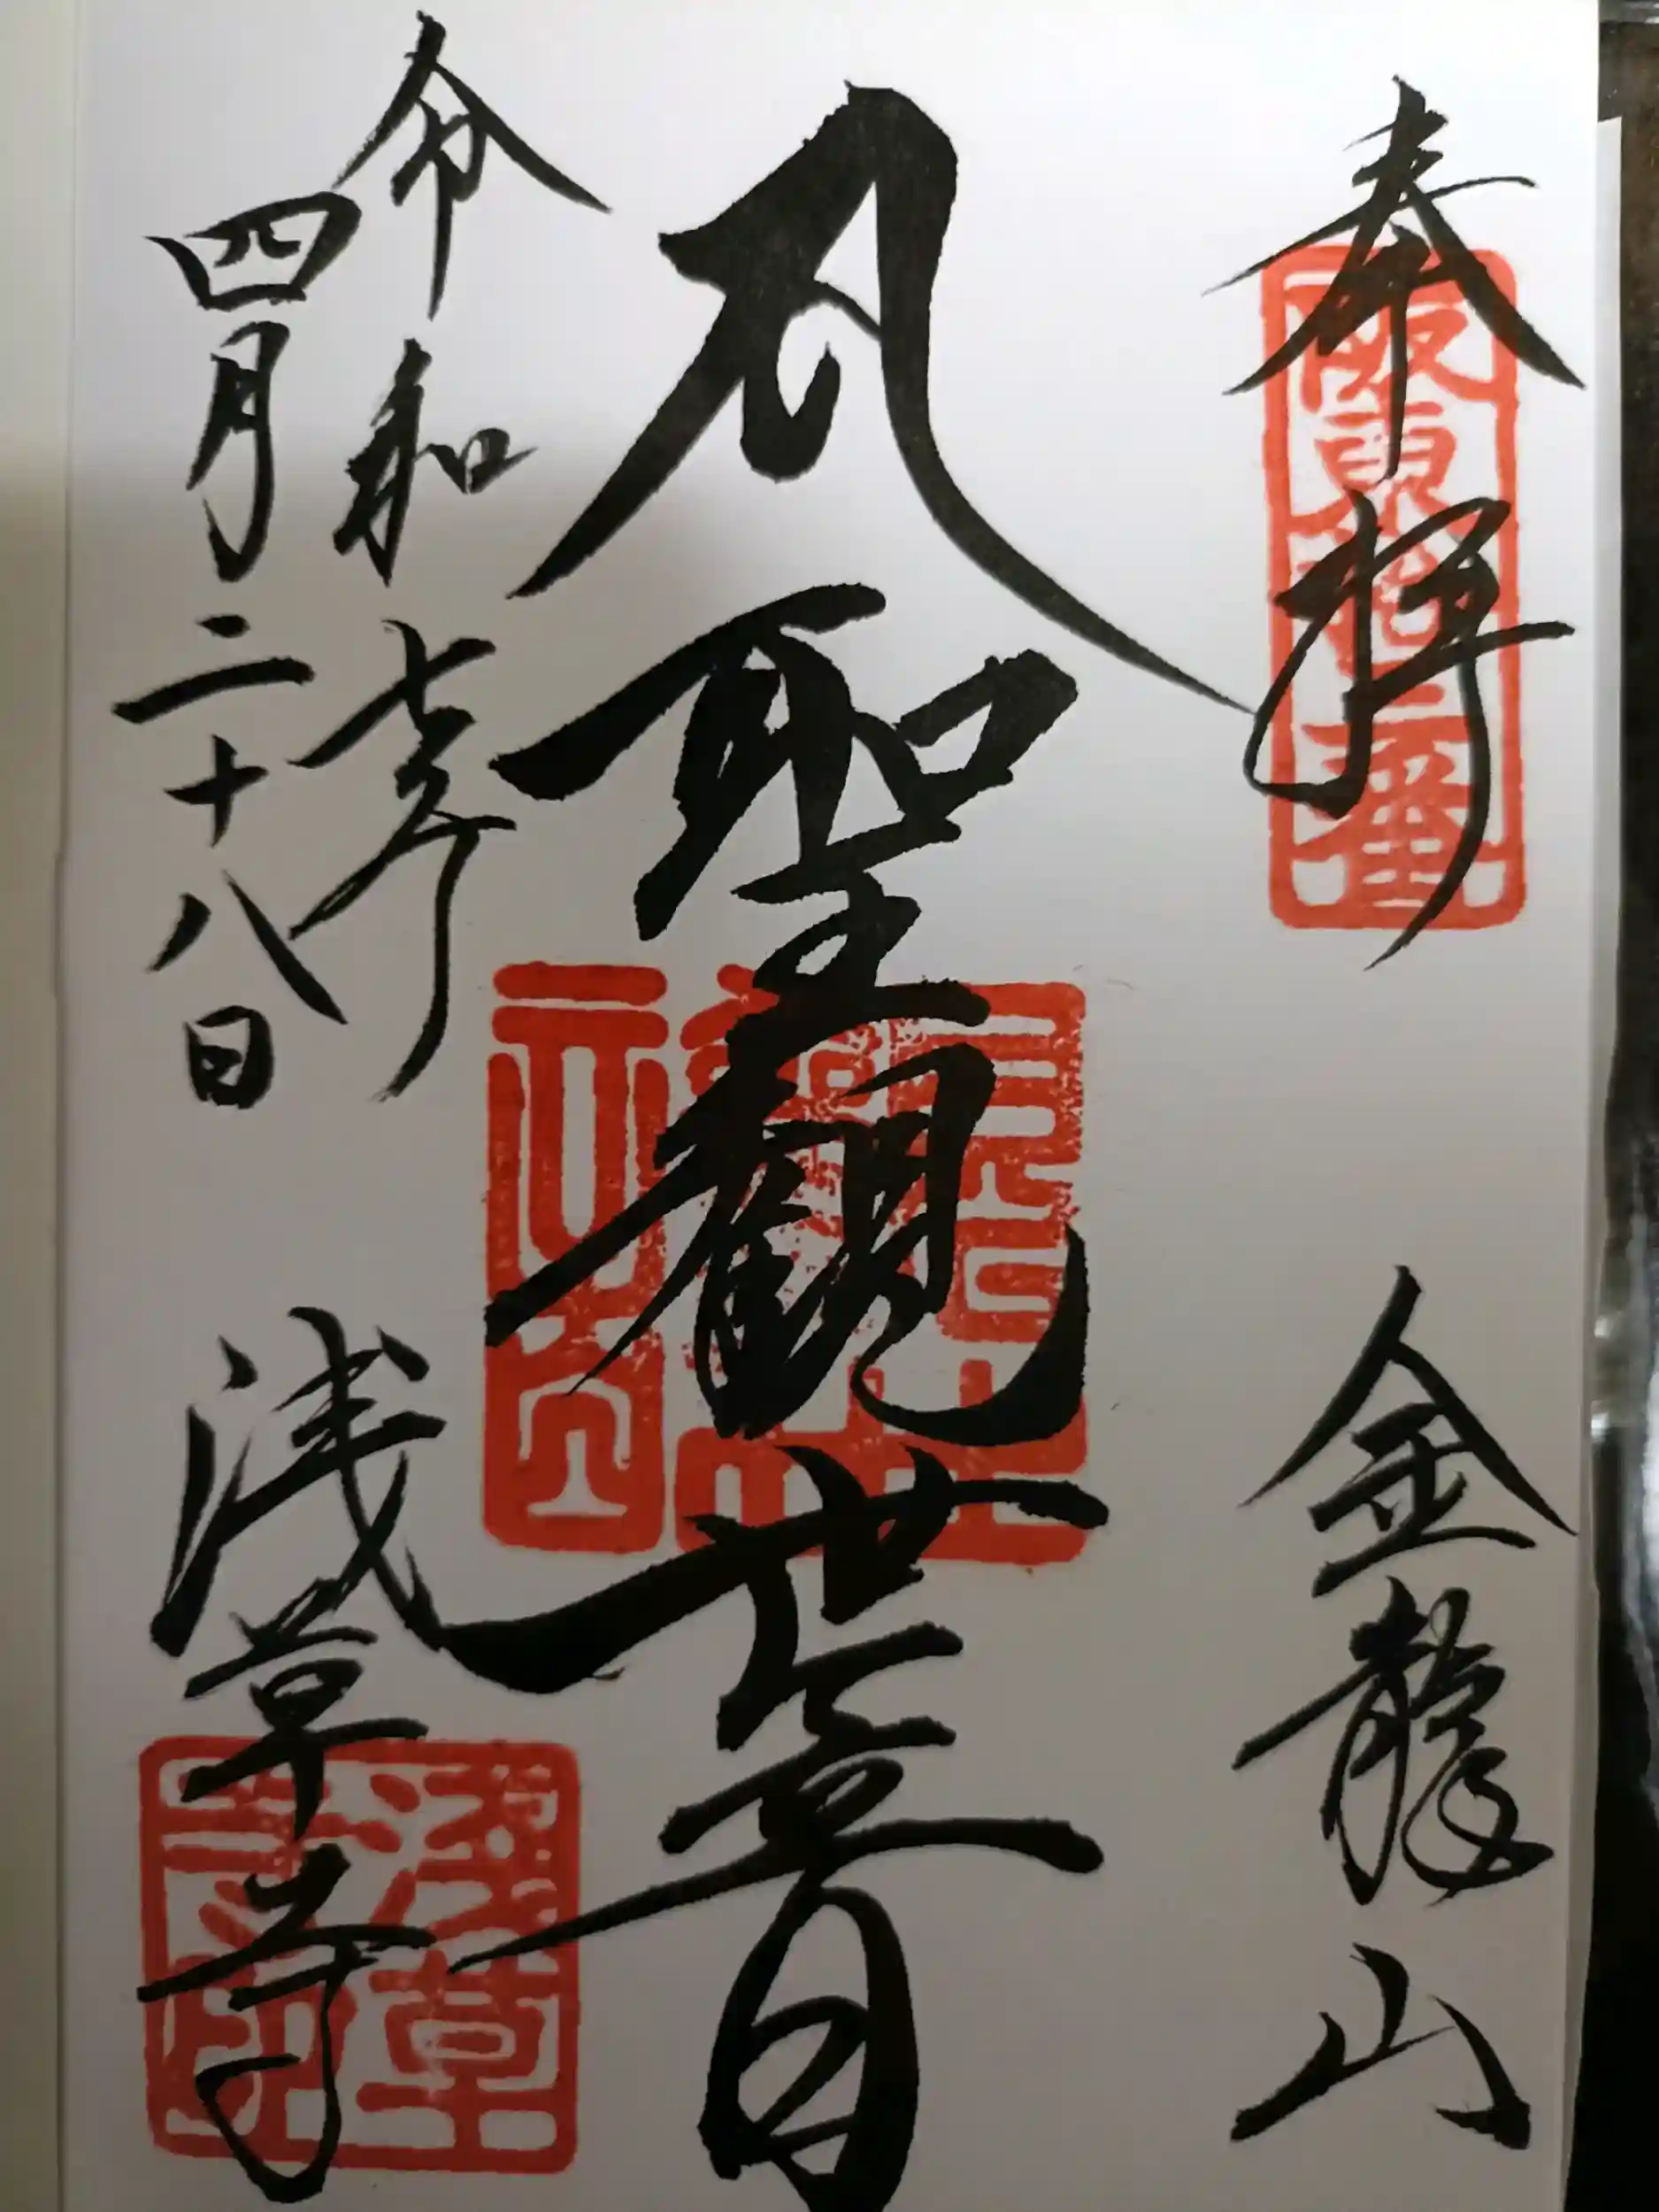 奉拝
阪東拾三番
金龍山
聖観世音
令和 年
四月二十八日
浅草寺
浅草寺印